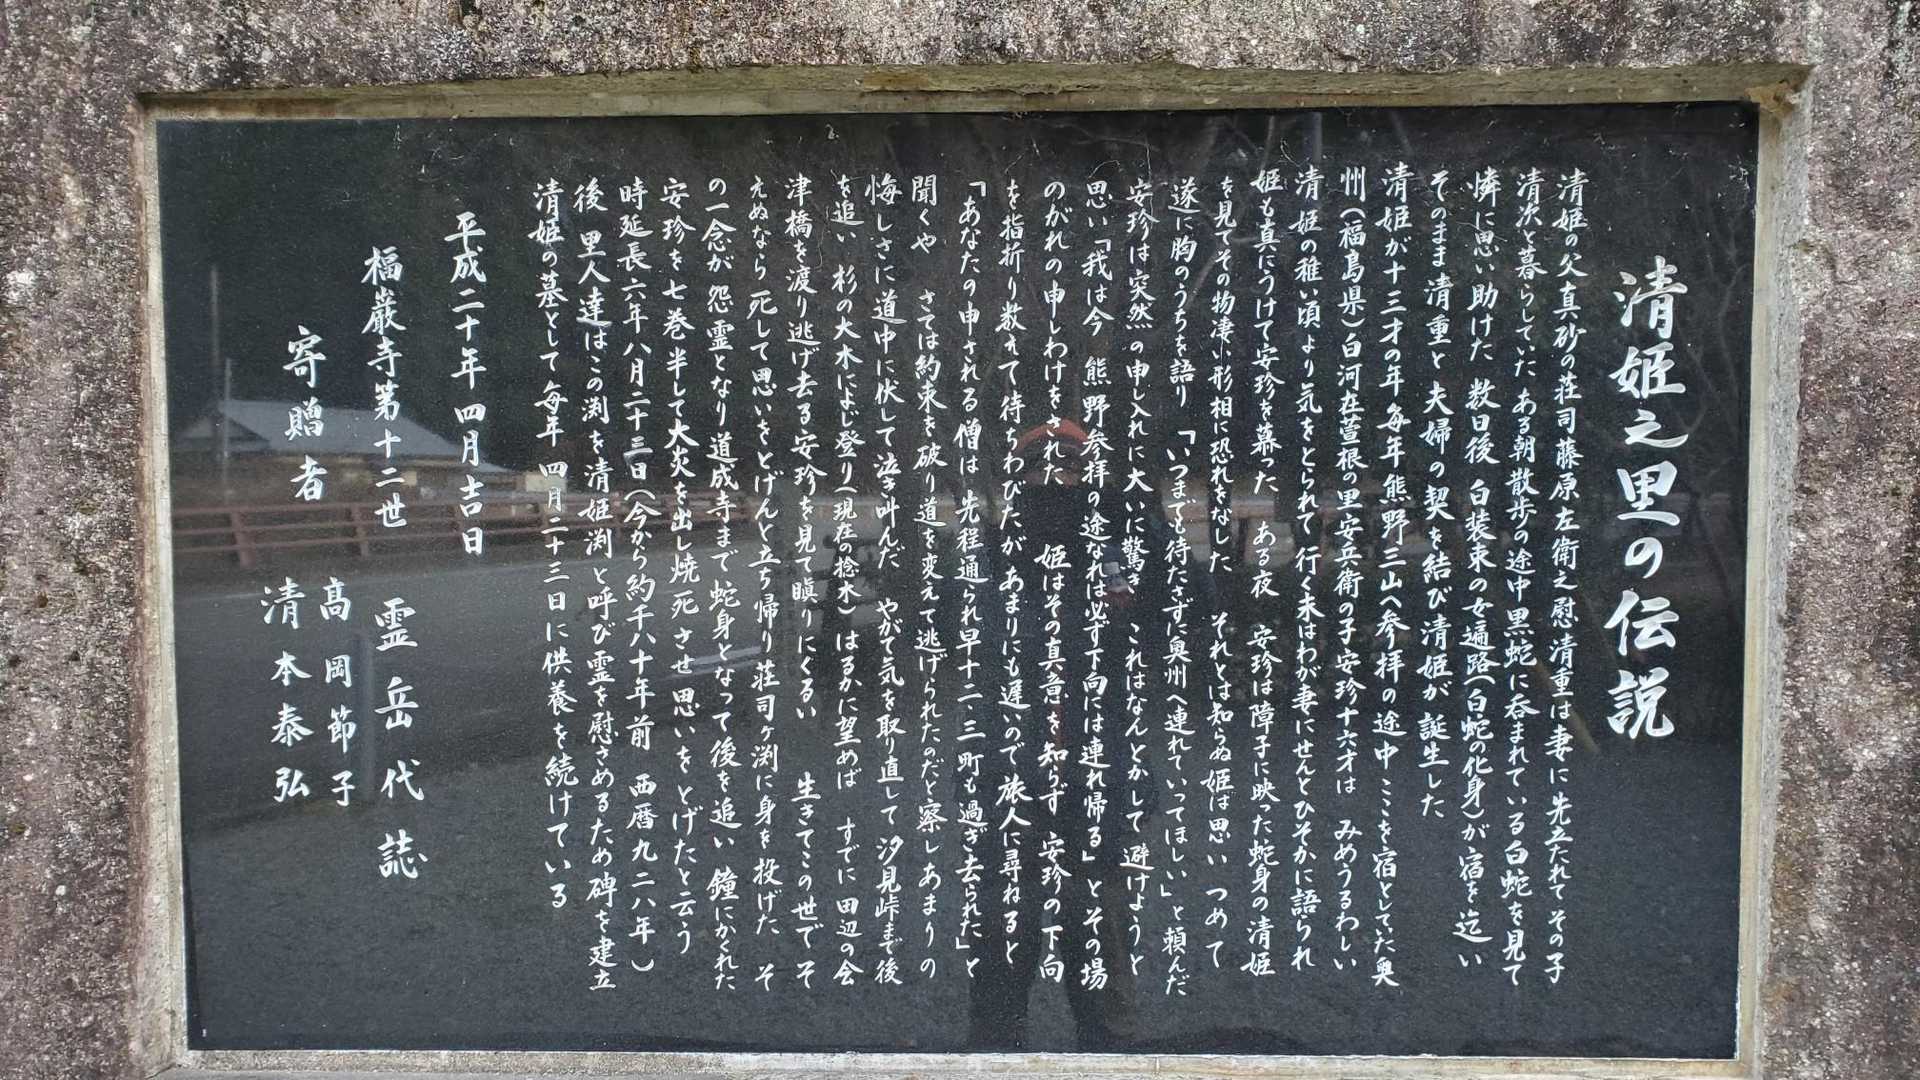 清姫之里の伝説
清姫の父真砂の荘司藤原左衛之慰清重は妻に先立たれてその子
清次と暮らしていた ある朝散歩の途中黒蛇に呑まれている白蛇を見て
憐に思い助けた 数日後 白装束の女遍路(白蛇の化身)が宿を迄い
そのまま清重と夫婦の契を結び清姫が誕生した
清姫が十三才の年毎年熊野三山へ参拝の途中ここを宿としていた奥
州(福島県)白河在萱根の里安兵衛の子安珍十六才は みめうるわしい
清姫の稚い頃より気をとられて行く末はわが妻にせんとひそかに語られ
姫も真にうけて安珍を慕った ある夜 安珍は障子に映った蛇身の清姫
を見てその物凄い形相に恐れをなした それとは知らぬ姫は思いつめて
遂に胸のうちを語り「いつまでも待たさずに奥州へ連れていってほしい」と頼んだ
安珍は突然の申し入れに大いに驚き これはなんとかして避けようと
思い「我は今 熊野参拝の途なれば必ず下向には連れ帰る」とその場
のがれの申しわけをされた 姫はその真意を知らず 安珍の下向
を指折り数えて待ちわびたがあまりにも遅いので旅人に尋ねると
「あなたの申される僧は 先程通られ早十二、三町も過ぎ去られた」と
聞くや さては約束を破り道を変えて逃げられたのだと察しあまりの
悔しさに道中に伏して泣き叫んだ やがて気を取り直して汐見峠まで後
を追い 杉の大木によじ登り(現在の捻木)はるかに望めば すでに田辺の会
津橋を渡り逃げ去る安珍を見て瞋りにくるい 生きてこの世でそ
えぬなら 死して思いをとげんと立ち帰り荘司ヶ渕に身を投げた そ
の一念が怨霊となり道成寺まで蛇身となって後を追い 鐘にかくれた
安珍を七巻半して大炎を出し焼死させ思いをとげたと云う
時延長六年八月二十三日(今から約千八十年前 西暦九二八年)
後 里人達はこの渕を清姫渕と呼び霊を慰さめるため碑を建立
清姫の墓として毎年四月二十三日に供養を続けている
平成二十年四月吉日
福巌寺第十二世 霊岳代誌
寄贈者 髙岡節子
清本泰弘